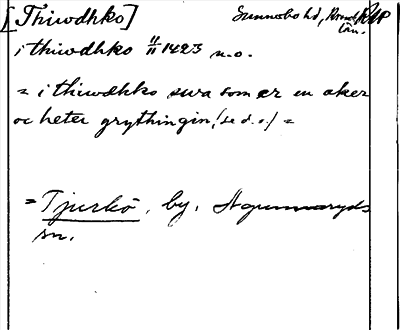 [Thiwdhkø] Sunnerbo hd,
län.
i thiwdhkø 11/11 1423 n.o.
= i thiwdhkø swa som er en aker
oc heter grythingin, (se d.o.) =
= Tjurkö, by,
sn.